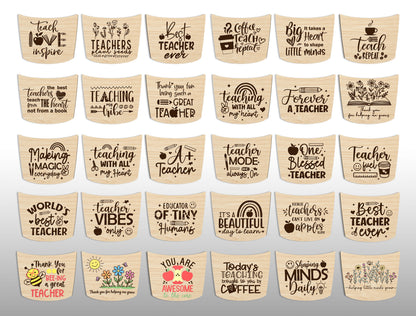 Teach
LOVE
inspire
TEACHERS
plant seeds
that
grow forever
Best
TEACHER
ever
Coffee
Teach
repeat
BIG
it takes a
Heart
to shape
LITTLE MINDS
Teach
REPEAT
the best
teachers
teach
from THE HEART
not from a book
TEACHING
tribe
Thank you for
being such a
GREAT
TEACHER
TEACHING
WITH ALL
my heart
Forever
A TEACHER
Thank you
for helping me grow
Making
MAGIC
everyday
teaching
WITH ALL
my Heart
A+
Teacher
Teacher
MODE
always On
One
Blessed
TEACHER
Teacher
fuel
WORLD'S
best
TEACHER
teacher
VIBES
only
EDUCATOR
OF TINY
Humans
IT'S A
BEAUTIFUL
day to learn
TEACHERS
CAN'T LIVE ON
apples
Best
TEACHER
ever
Thank You
for
BEE-ING
a great
TEACHER
Thank you for helping me grow
YOU ARE
AWESOME
to the core
Today's
TEACHING
brought to you by
COFFEE
Shaping
MINDS
Daily
helping little minds grow